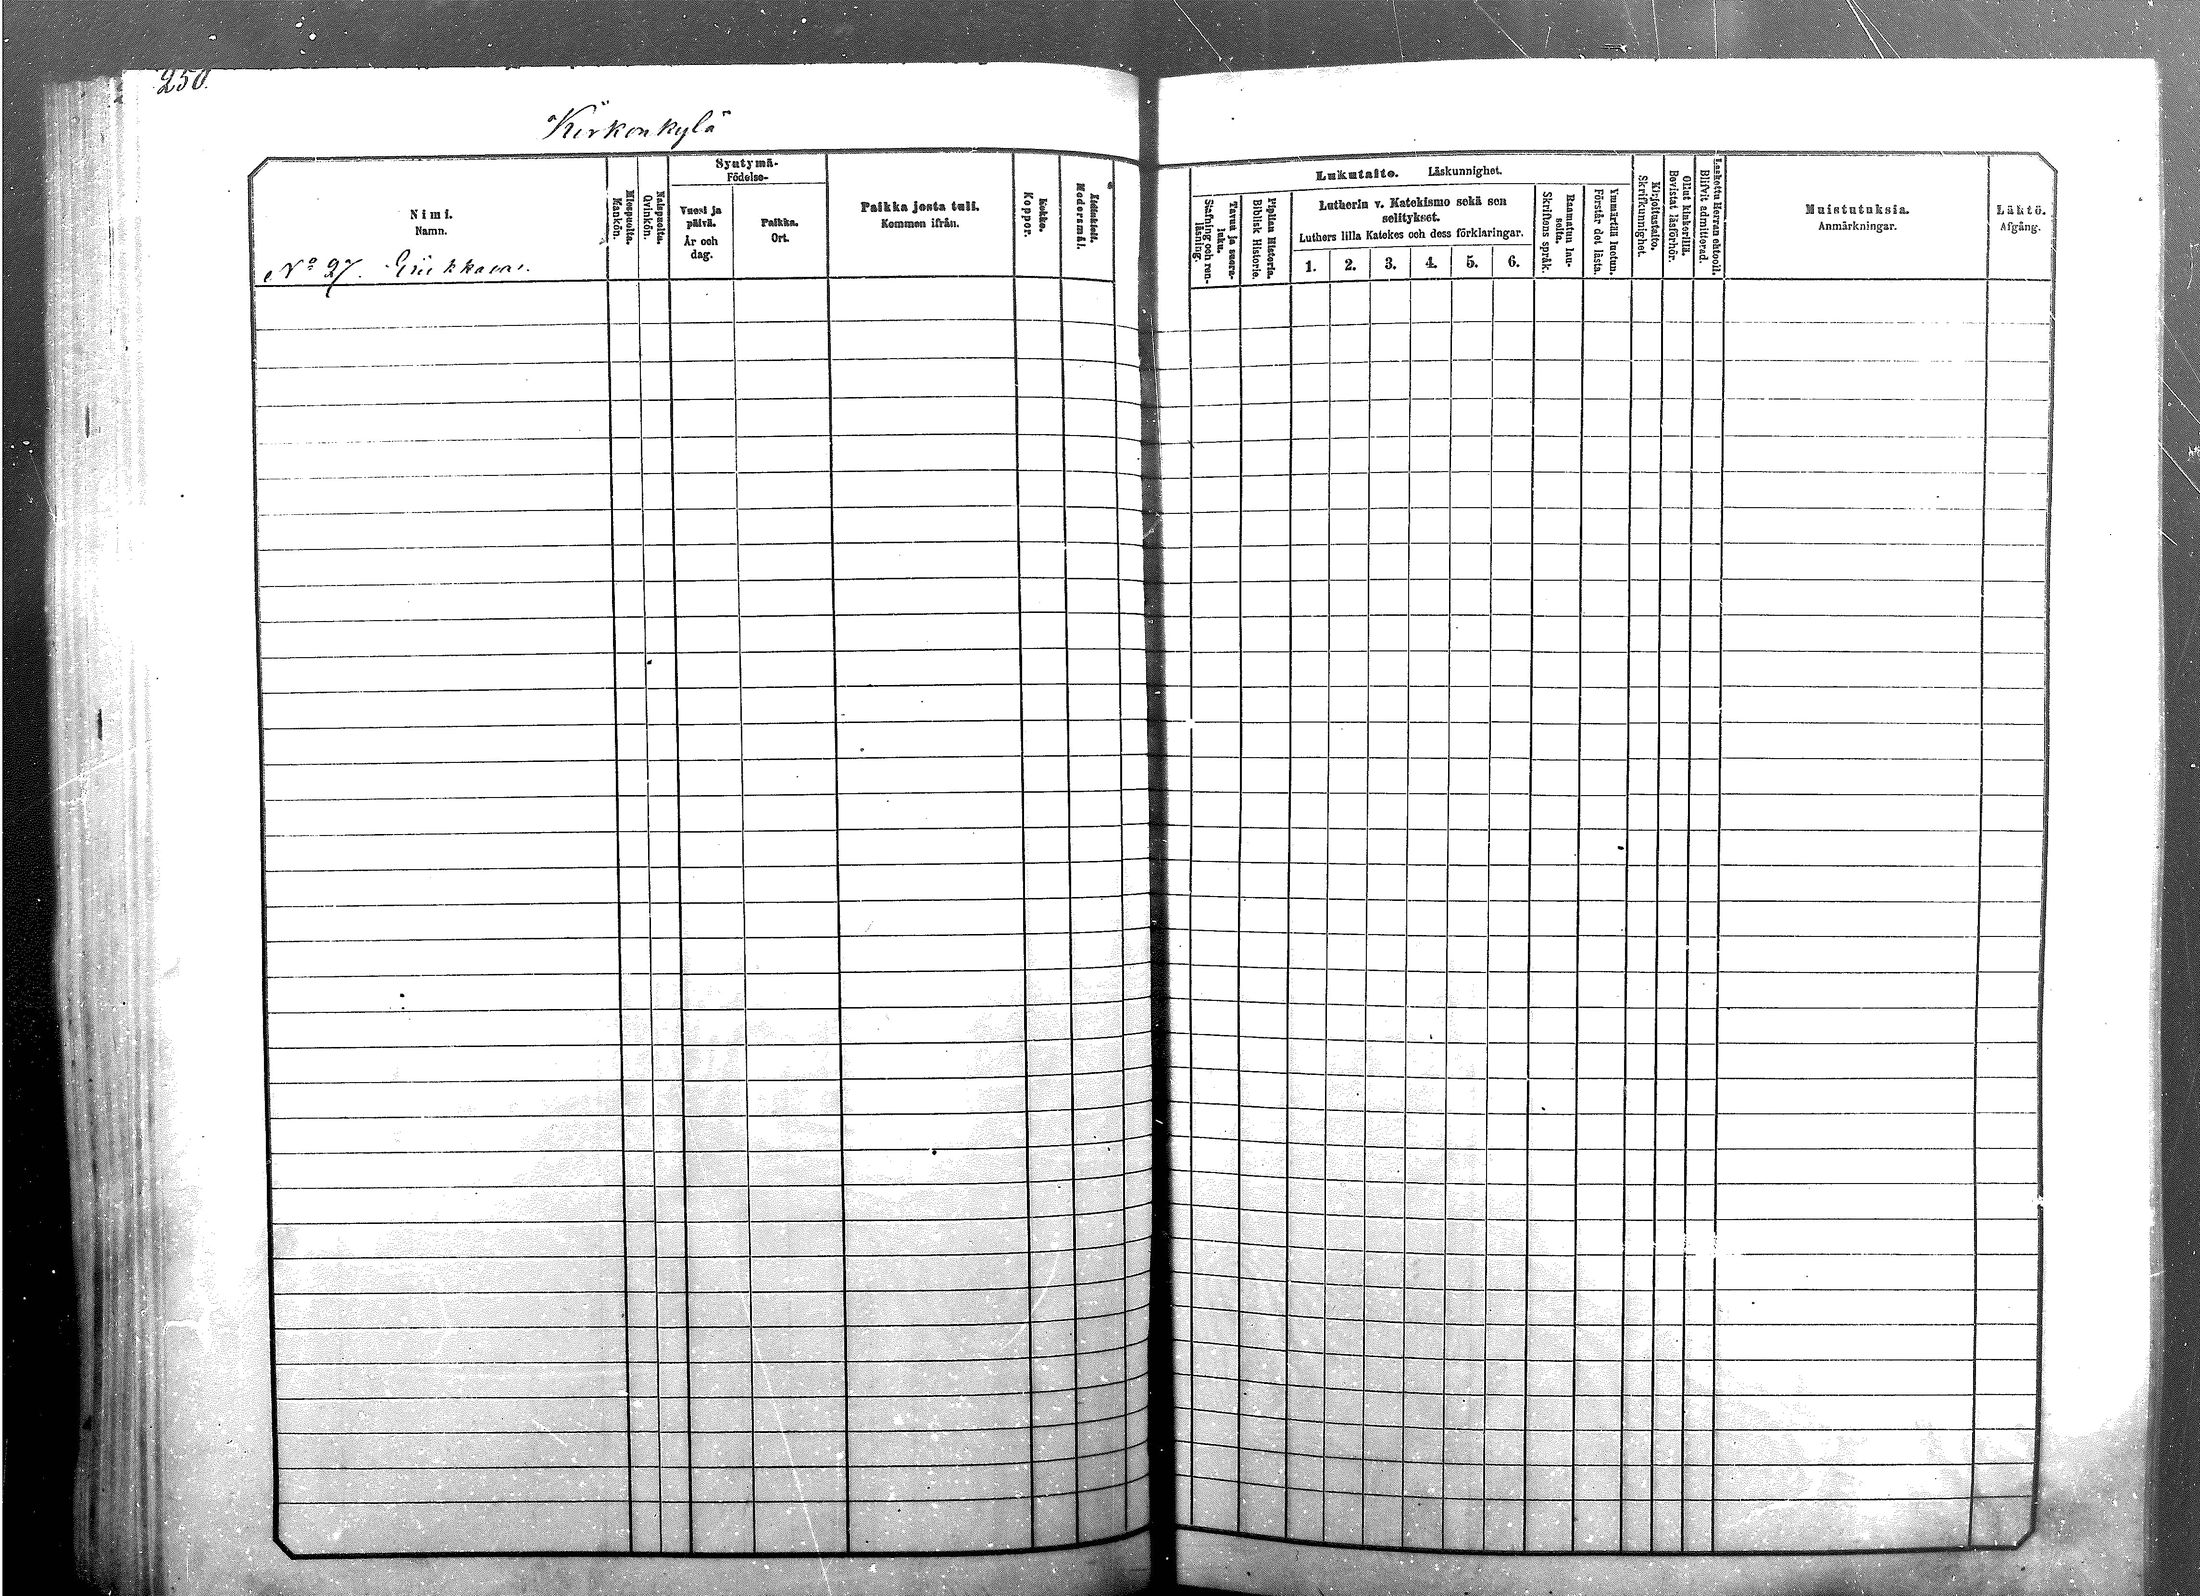 250.
Kirkonkylä
Nimi.
Namn.
Miespuolia.
Mankön.
Naispuolia.
Qvinkön.
Syntymä-
Födelse-
Vuosi ja
päivä.
År och
dag.
Paikka.
Ort.
Paikka josta tuli.
Kommen ifrån.
Rokko.
Koppor.
Äidinkieli.
Modersmål.
No 27.
Lukutaito. Läskunnighet.
Tavuu ja suora-
luku.
Stafning och ren-
läsning.
Piplian Historia.
Biblisk Historie.
Lutherin v. Katekismo sekä sen
selitykset.
Luthers lilla Katekes och dess förklaringar.
1. 2. 3. 4. 5. 6.
Raamatun lau-
seita.
Skriftens språk.
Ymmärtää luetun.
Förstår det lästa.
Kirjoitustaito.
Skrifkunnighet.
Ollut kinkerillä.
Bevistat läsförhör.
Laskettu Herran ehtooll.
Blifvit admitterad.
Muistutuksia.
Anmärkningar.
Lähtö.
Afgång.